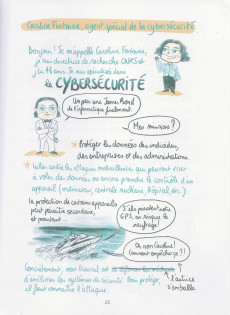 Caroline Fontaine, agent spécial de la cybersécurité
Bonjour ! Je m'appelle Caroline Fontaine,
je suis directrice de recherche CNRS et
j'ai ans. Je suis spécialisée dans
la CYBERSÉCURITÉ
Un peu une James Bond
de l'informatique finalement.
Mes missions ?
Protéger les données des individus,
des entreprises et des administrations.
Lutter contre les attaques malveillantes qui peuvent viser
à voler des données ou encore prendre le contrôle d'un
appareil (ordinateur, centrale nucléaire, hôpital, etc.)
La protection de certains appareils
peut paraître secondaire,
et pourtant...
S'ils piratent votre
GPS, on risque le
naufrage !
Oh non Caroline !
Comment empêcher ça ?!
Concrètement, mon travail est de
d'améliorer les systèmes de sécurité. Pour protéger,
il faut connaître l'attaque.
l'autrice
s'emballe